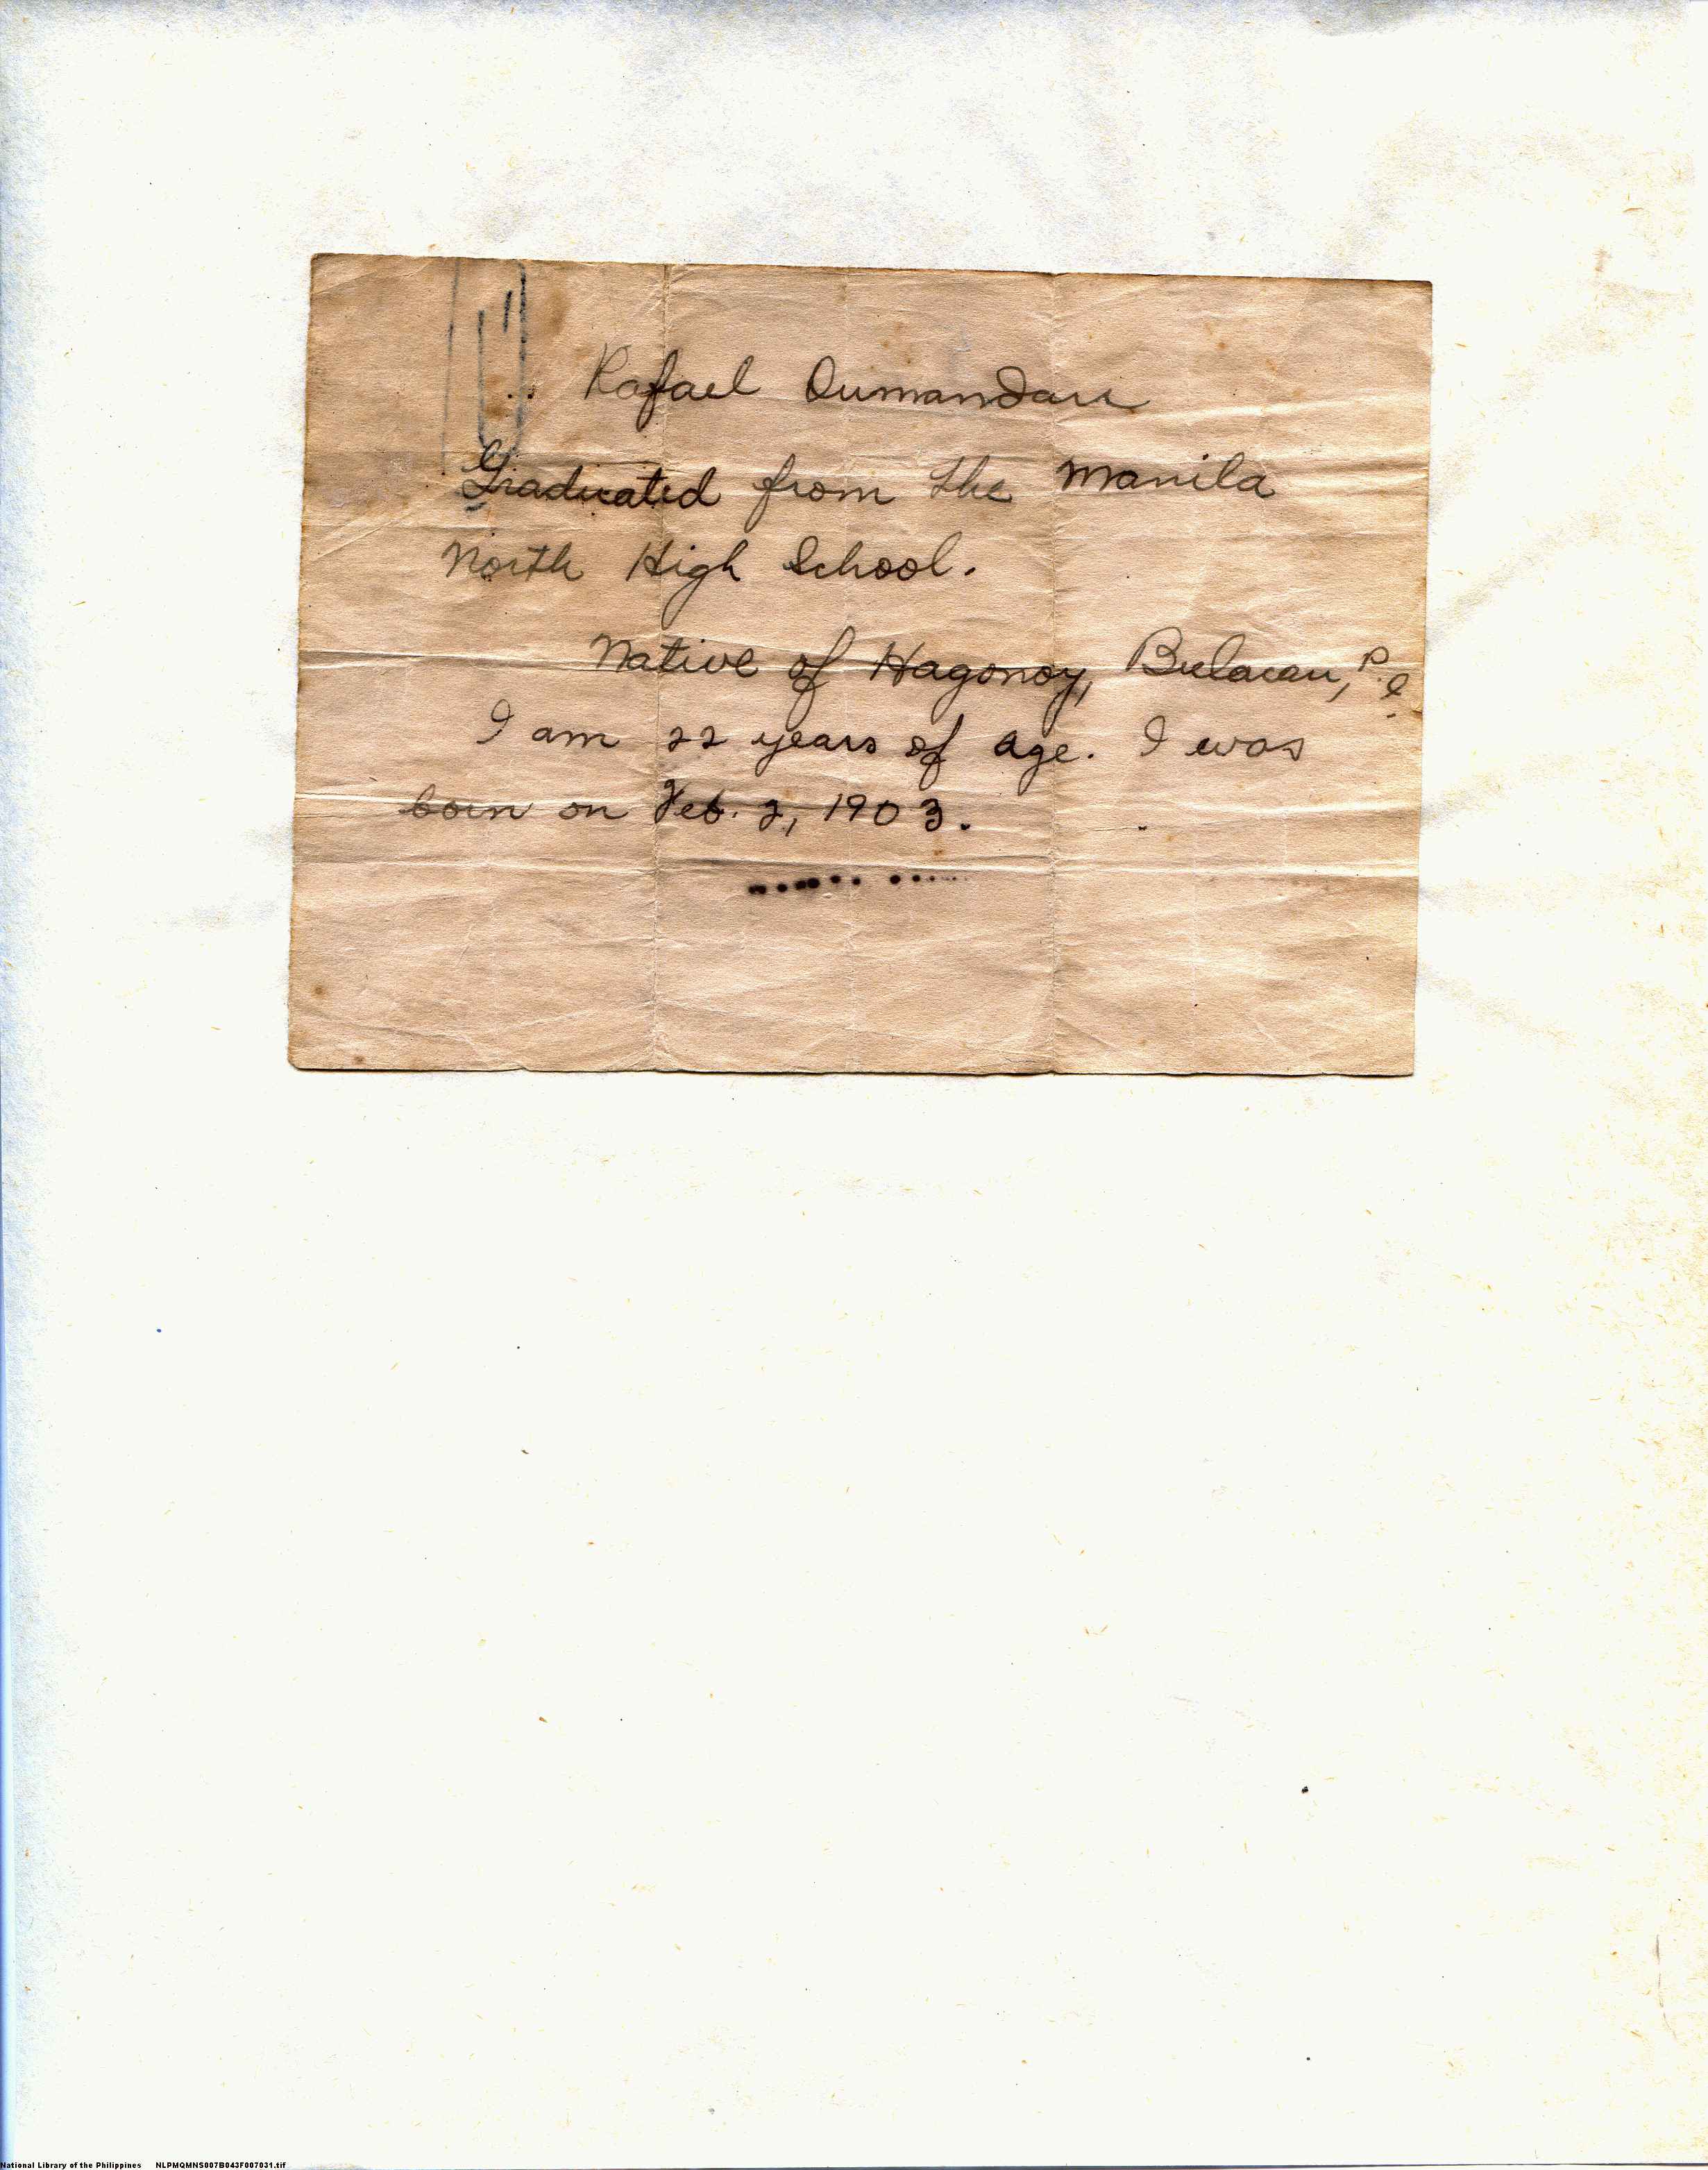 Rafael Dumandan
Graduated from the Manila
North High School.
Native of Hagonoy, Bulacan, P.I.
I am 22 years of age. I was
born on Feb. 2, 1903.
National Library of the Philippines NLPMQMNS007B043F007031.tif